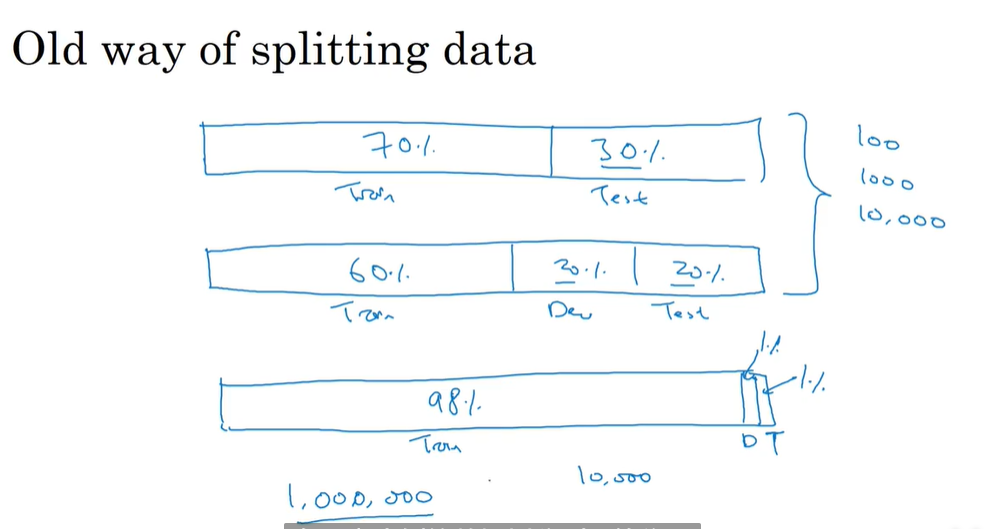 Old way of splitting data
70% 30%
Train Test
100
1000
10,000
60% 20% 20%
Train Dev Test
1%
1%
98%
Train D T
10,000
1,000,000